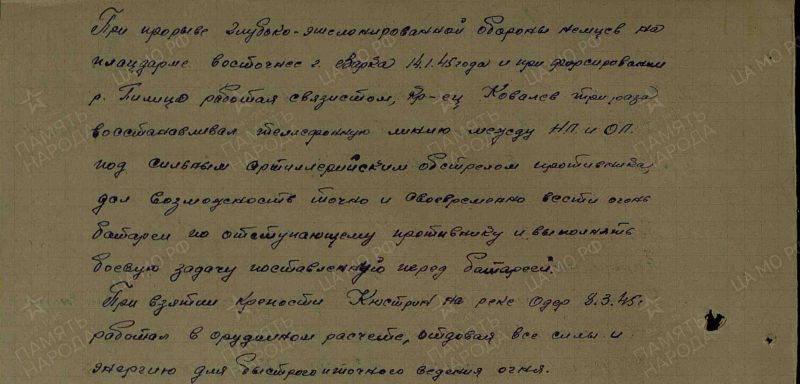 При прорыве глубоко-эшелонированной обороны немцев на
плацдарме восточнее г. Варка 14.1.45 года и при форсировании
р. Пилица работая связистом, кр-ец Ковалев три раза
восстанавливал телефонную линию между НП и ОП.
под сильным артиллерийским обстрелом противника,
дал возможность точно и своевременно вести огонь
батареи по отступающему противнику и выполнять
боевую задачу поставленную перед батареей.
При взятии крепости Кюстрин на реке Одер 8.3.45г.
работал в орудийном расчете, отдавая все силы и
энергию для быстрого и точного ведения огня.
ПАМЯТЬ НАРОДА
ЦА МО РФ